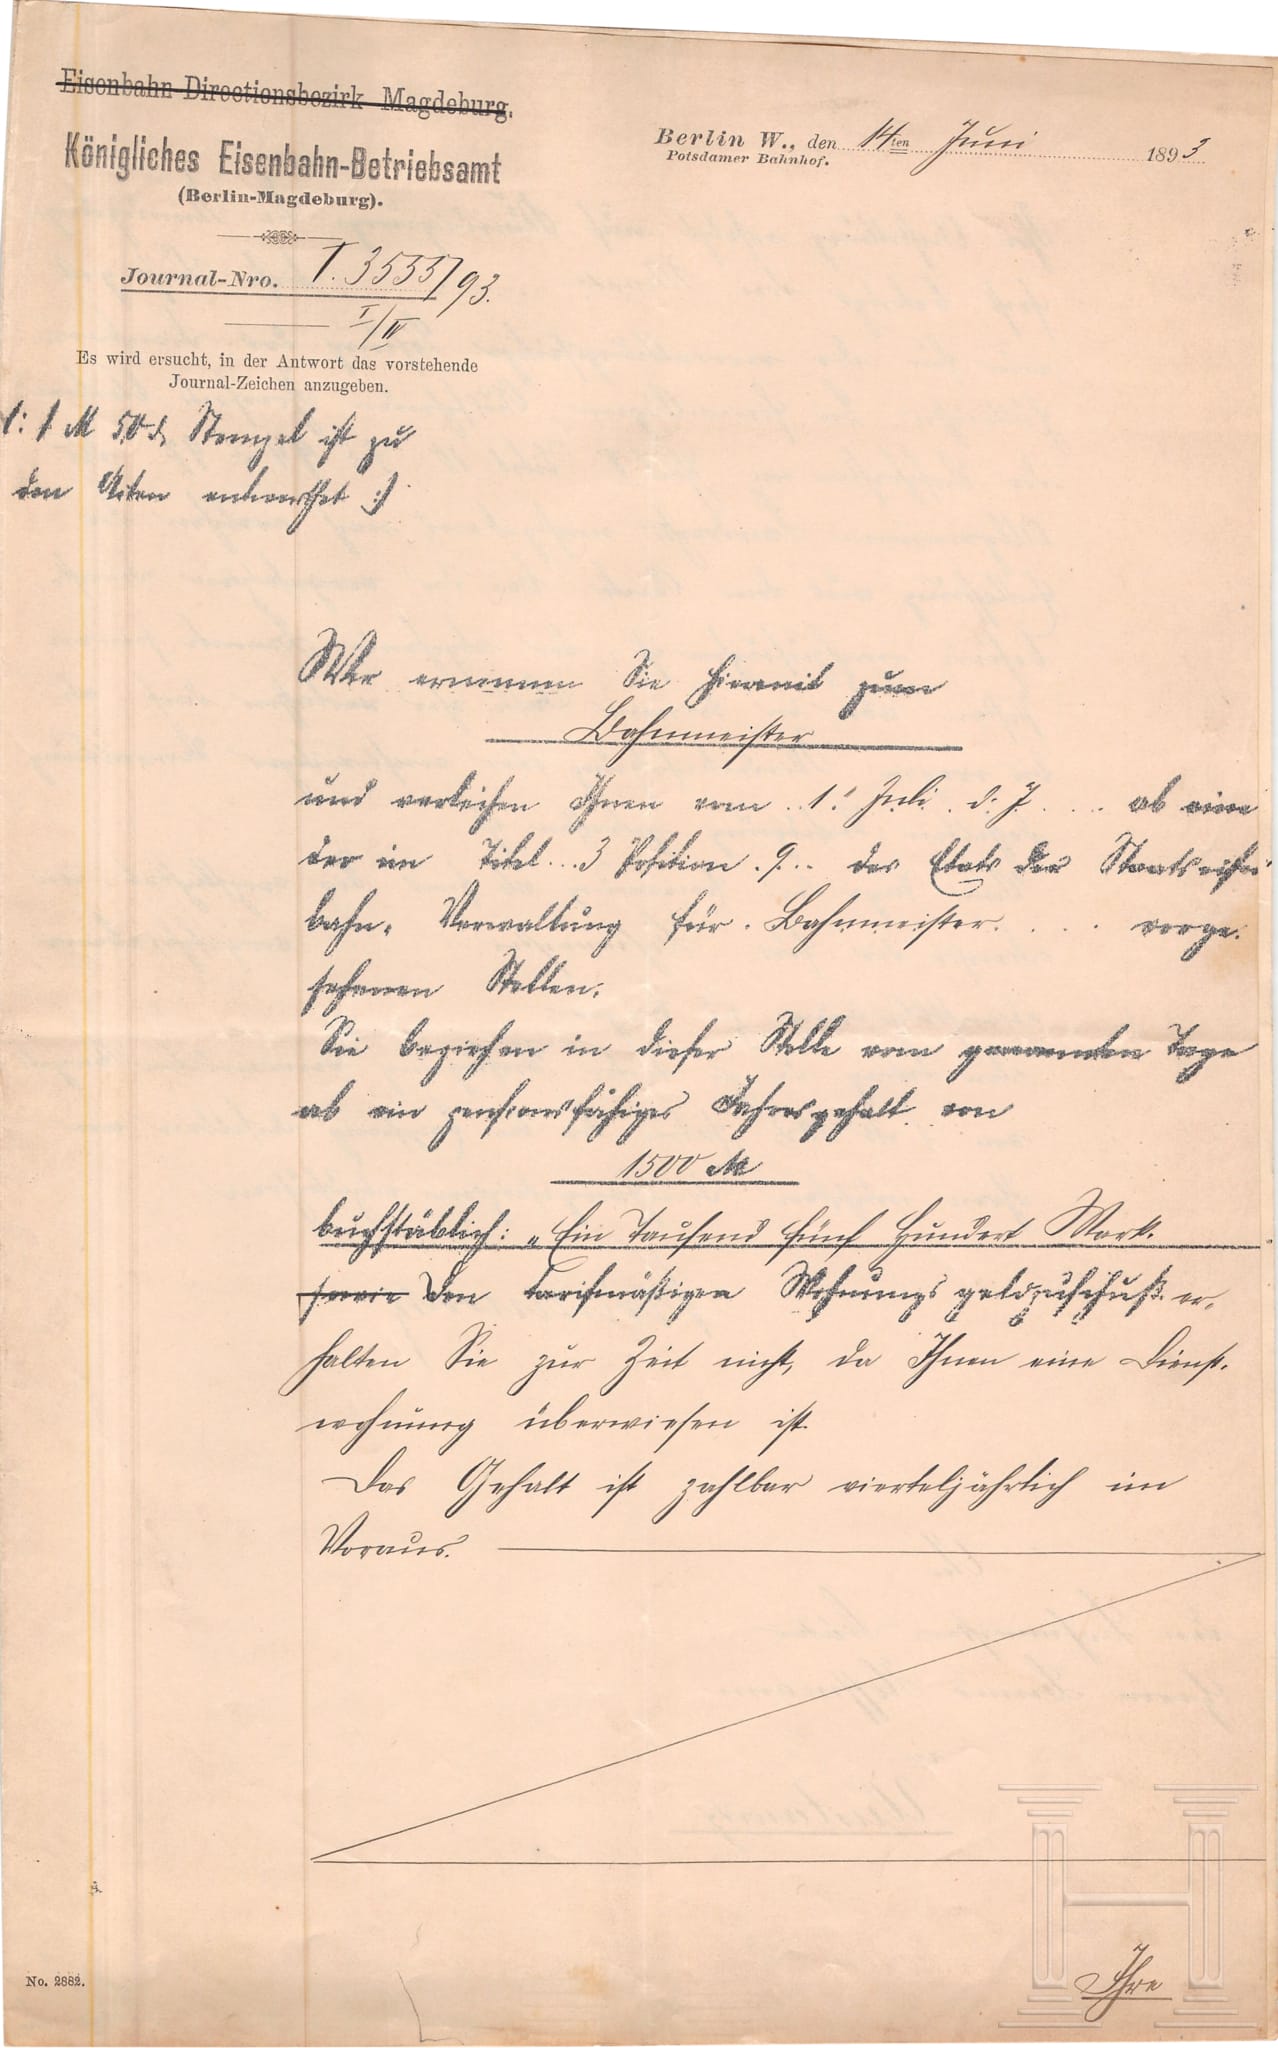 Eisenbahn-Directionsbezirk Magdeburg.
Königliches Eisenbahn-Betriebsamt
(Berlin-Magdeburg).
Journal-Nro. I. 3535/93.
I/IV
Es wird ersucht, in der Antwort das vorstehende
Journal-Zeichen anzugeben.
Berlin W., den 14ten Juni 1893
Potsdamer Bahnhof.
/: 1 M 50 d Stempel ist zu
den Akten entwerthet :/
Wir ernennen Sie hiermit zum
Bahnmeister
und verleihen Ihnen vom 1. Juli d. J. ab eine
der im Titel 3 Position 9 des Etats der Staatseisen
bahn-Verwaltung für Bahnmeister vorge-
sehenen Stellen.
Sie beziehen in dieser Stelle vom genannten Tage
ab ein pensionsfähiges Jahresgehalt von
1500 M
buchstäblich: „Ein Tausend fünf Hundert Mark.
sowie den tarifmäßigen Wohnungsgeldzuschuß er-
halten Sie zur Zeit nicht, da Ihnen eine Dienst-
wohnung überwiesen ist.
Das Gehalt ist zahlbar vierteljährlich im
Voraus.
No. 2882.
Ihre